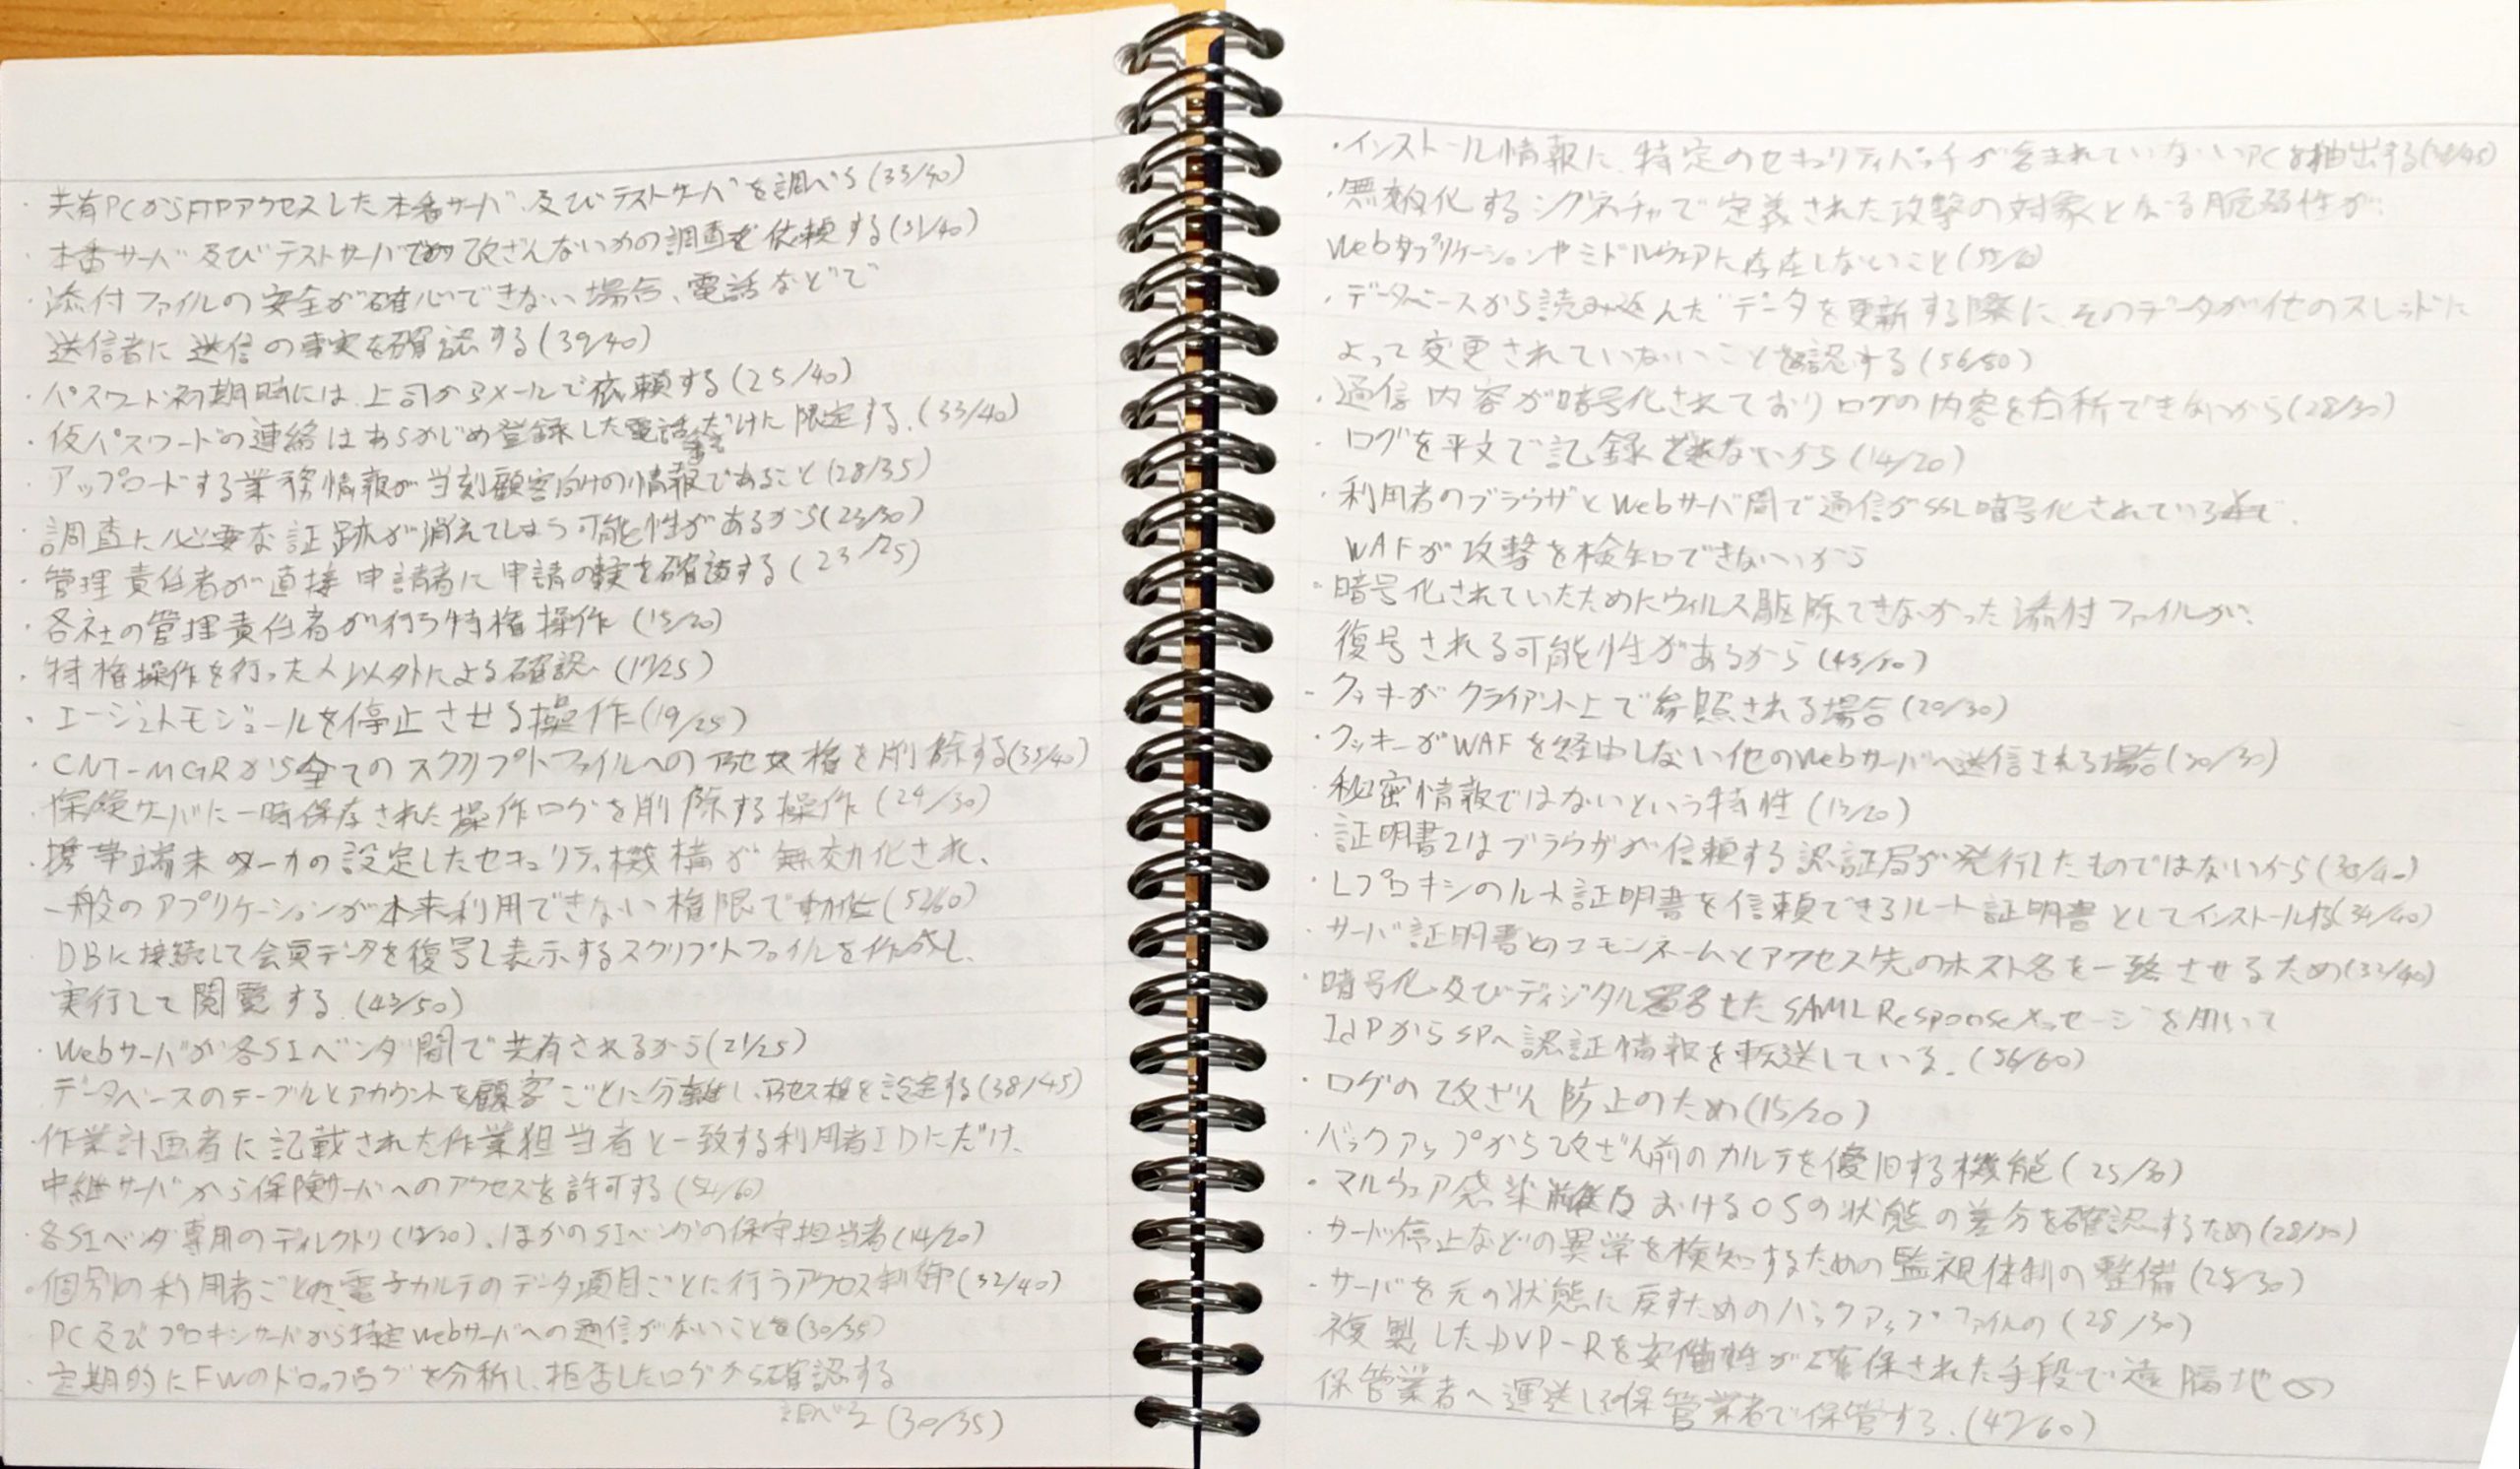 ・共有PCからFTPアクセスした本番サーバ及びテストサーバを調べる(33/40)
・本番サーバ及びテストサーバで改ざんないかの調査を依頼する(31/40)
・添付ファイルの安全が確心できない場合、電話などで
送信者に送信の事実を確認する(39/40)
・パスワード初期時には上司からメールで依頼する(25/40)
・仮パスワードの連絡はあらかじめ登録した電話だけに限定する.(33/40)
・アップロードする業務情報が当刻顧客向けの情報であること(28/35)
・調査に必要な証跡が消えてしまう可能性があるから(23/30)
・管理責任者が直接申請者に申請の事実を確認する(23/25)
・各社の管理責任者が行う特権操作(15/20)
・特権操作を行った人以外による確認(17/25)
・エージェントモジュールを停止させる操作(19/25)
・CNT-MGRから全てのスクリプトファイルへのアクセス権を削除する(35/40)
・保険サーバに一時保存された操作ログを削除する操作(24/30)
・携帯端末メーカの設定したセキュリティ機構が無効化され、
一般のアプリケーションが本来利用できない権限で動作(52/60)
・DBに接続して会員データを復号し表示するスクリプトファイルを作成し、
実行して閲覧する.(43/50)
・Webサーバが各SIベンダ間で共有されるから(21/25)
データベースのテーブルとアカウントを顧客ごとに分離し、アクセス権を設定する(38/45)
・作業計画者に記載された作業担当者と一致する利用者IDにだけ、
中継サーバから保険サーバへのアクセスを許可する(52/60)
・各SIベンダ専用のディレクトリ(13/20)、ほかのSIベンダの保守担当者(14/20)
・個別の利用者ごとの電子カルテのデータ項目ごとに行うアクセス制御(32/40)
PC及びプロキシサーバから特定Webサーバへの通信がないことを(30/35)
・定期的にFWのドロップログを分析し、拒否したログから確認する
調べる(30/35)
・インストール情報に、特定のセキュリティパッチが含まれていないPCを抽出する
・無効化するシグネチャで定義された攻撃の対象となる脆弱性が、
Webアプリケーションやミドルウェアに存在しないこと
・データベースから読み込んだデータを更新する際に、そのデータが他のスレッドに
よって変更されていないことを認する(56/60)
・通信内容が暗号化されておりログの内容を分析できないから(28/30)
・ログを平文で記録できないから(14/20)
・利用者のブラウザとWebサーバ間で通信がSSL暗号化されているので、
WAFが攻撃を検知できないから
・暗号化されていたためにウィルス駆除できなかった添付ファイルが、
復号される可能性があるから(43/50)
・クッキーがクライアント上で参照される場合(20/30)
・クッキーがWAFを経由しない他のWebサーバへ送信される場合(30/30)
・秘密情報ではないという特性(13/20)
・証明書2はブラウザが信頼する認証局が発行したものではないから
・Lプロキシのルート証明書を信頼できるルート証明書としてインストールする(34/40)
・サーバ証明書とのコモンネームとアクセス先のホスト名を一致させるため(33/40)
・暗号化及びディジタル署名させたSAML Responseメッセージを用いて
IdPからSPへ認証情報を転送している.(56/60)
・ログの改ざん防止のため(15/20)
・バックアップから改ざん前のカルテを復旧する機能(25/30)
・マルウェア感染前後におけるOSの状態の差分を確認するため(28/30)
・サーバ停止などの異常を検知するための監視体制の整備(25/30)
・サーバを元の状態に戻すためのバックアップファイルの(28/30)
複製したDVD-Rを安全性が確保された手段で遠隔地の
保管業者へ運送して保管業者で保管する.(47/60)